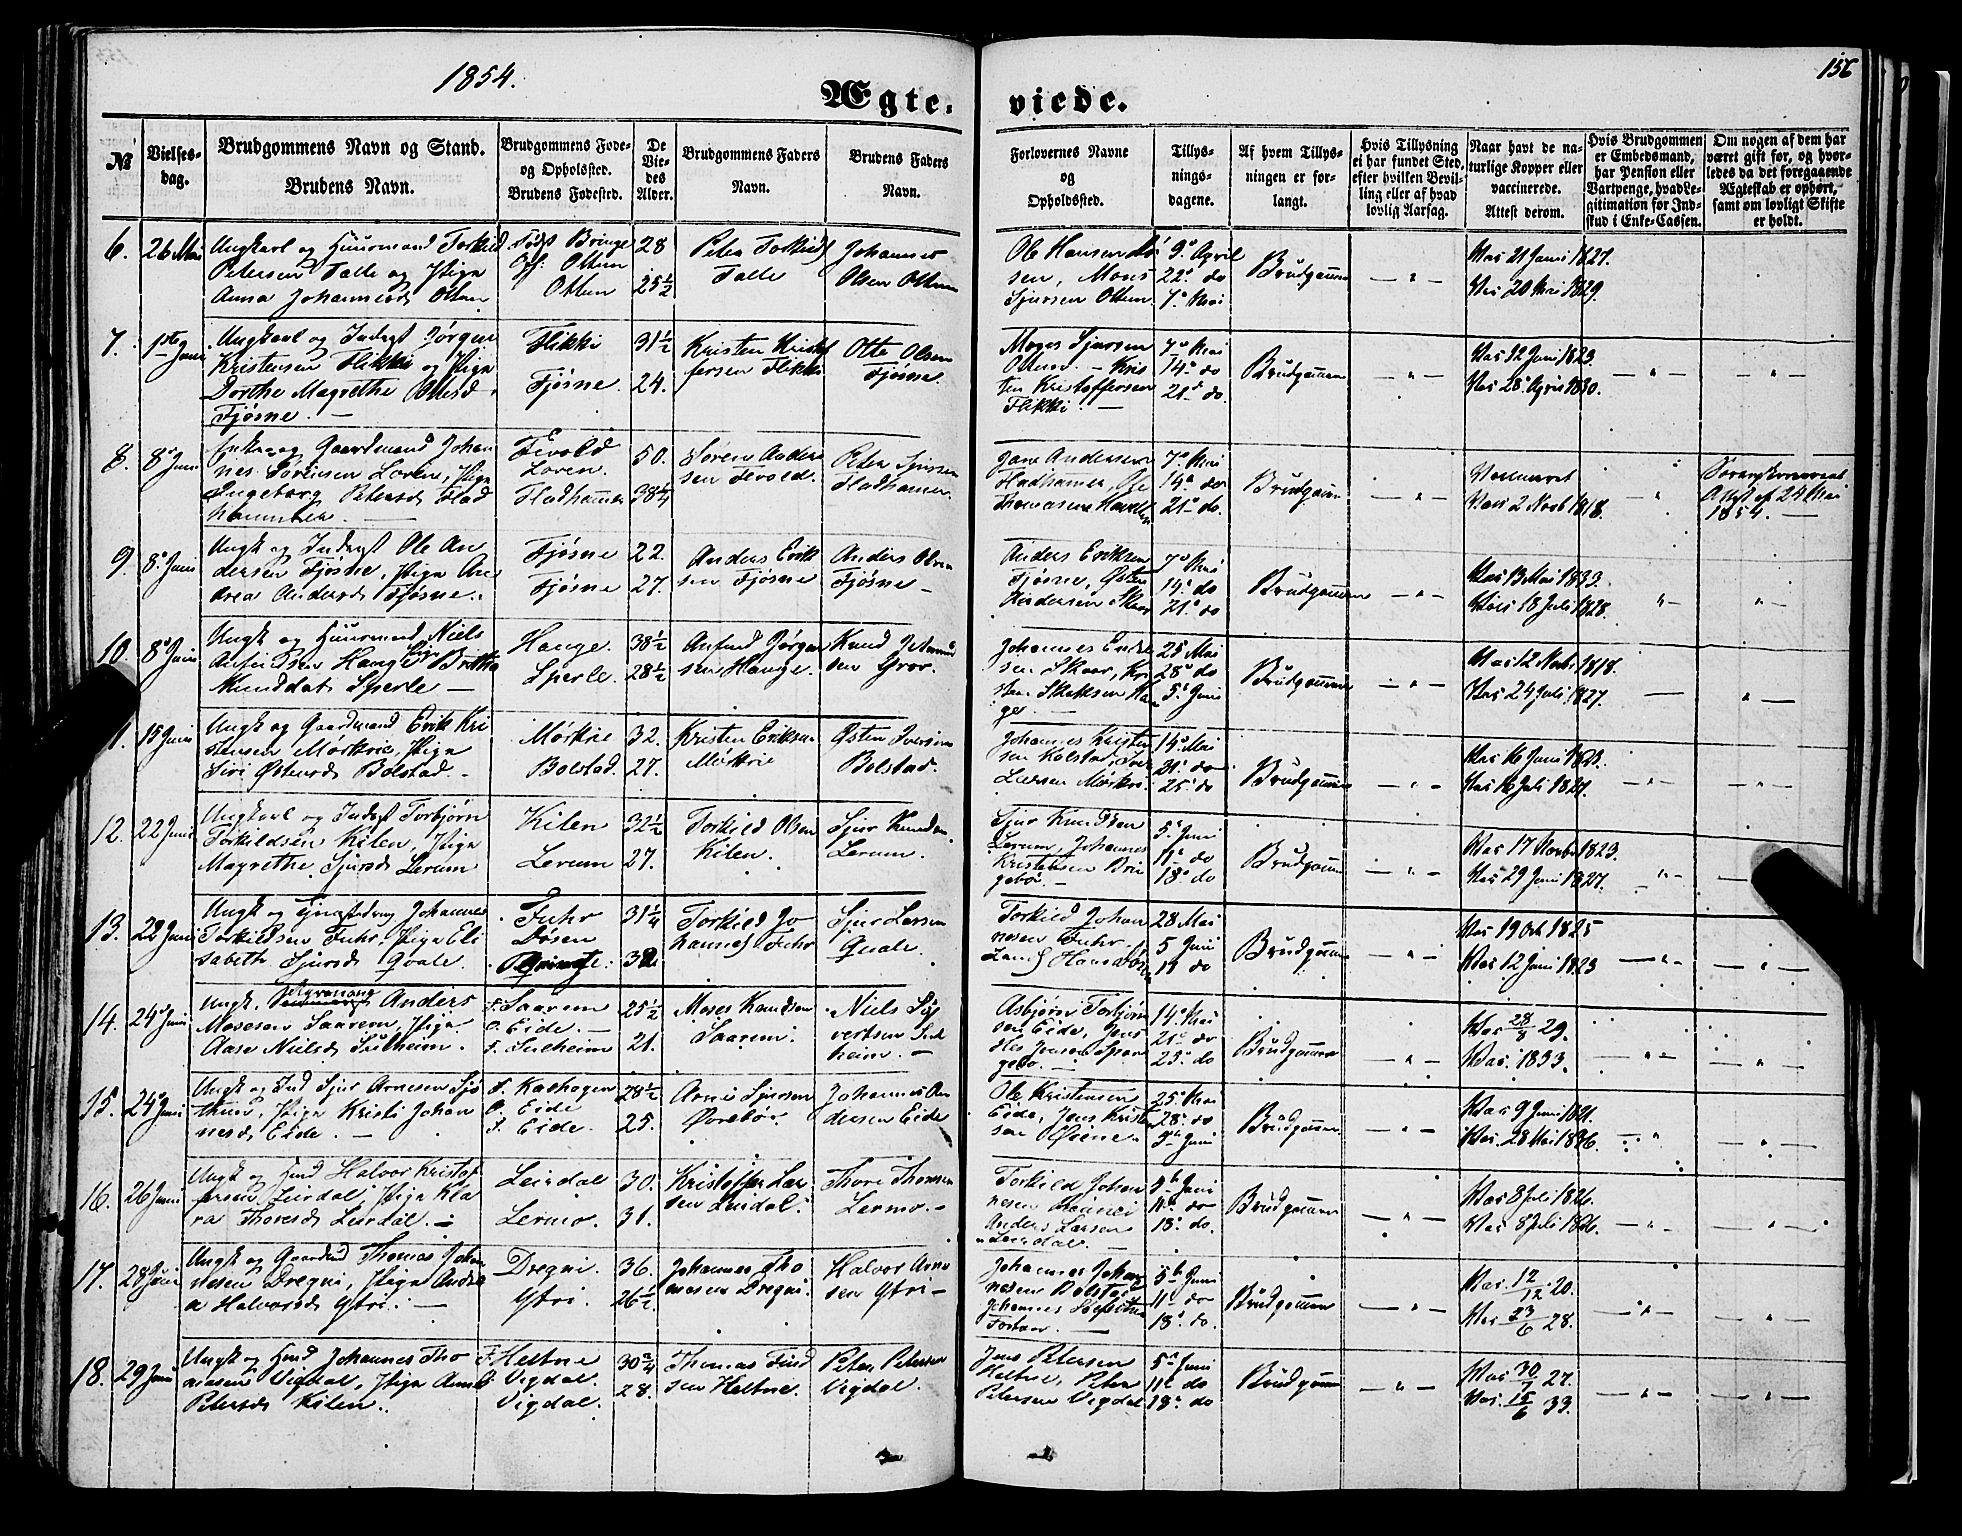 1854.
156
Ægte-
viede.
№
Vielses-
dag.
Brudgommens Navn og Stand.
Brudens Navn.
Brudgommens Føde-
og Opholdssted.
Brudens Fødested.
De
Vie-
des
Alder.
Brudgommens Faders
Navn.
Brudens Faders
Navn.
Forlovernes Navne
og
Opholdssted.
Tillys-
nings-
dagene.
Af hvem Tillys-
ningen er for-
langt.
Hvis Tillysning
ei har fundet Sted,
efter hvilken Bevil-
ling eller af hvad
lovlig Aarsag.
Naar havt de na-
turlige Kopper eller
vaccinerede.
Attest derom.
Hvis Brudgommen
er Embedsmand,
har Pension eller
Vartpenge, hvad Le-
gitimation for Ind-
skud i Enke-Cassen.
Om nogen af dem har
været gift før, og hvor-
ledes da det foregaaende
Ægteskab er ophørt,
samt om lovligt Skifte
er holdt.
6. 26 Mai
Ungkarl og Huusmand Torkild
Petersen Talle og Pige
Anna Johannesd. Ottum
Født Bringe
Opf: Ottum
Ottum
28
25½
Peter Torkilds
Talle
Johannes
Olsen Ottum
Ole Hansen
sen, Mons
Sjursen Ottum
9. April
22. do
7. Mai
Brudgommen
Vac 21 Juni 1827.
Vac 20 Mai 1829.
7. 1ste Juni
Ungkarl og Inderst Jørgen
Kristensen Flikki og Pige
Dorthe Magrethe Ottesd.
Fjøsne.
Flikki
Fjøsne
31½
24.
Kristen Kristof
fersen Flikki
Otte Olsen
Fjøsne.
Moses Sjursen
Ottum. Kris
ten Kristoffersen
Flikki.
7. Mai
14. do
21. do.
Brudgommen
Vac 12 Juni 1823.
Vac 28 April 1830.
8. 8 Juni
Enkem. og Gaardmand Johan
nes Sørensen Loven, Pige
Ingeborg Petersd. Flad
hammer.
Fevold
Loven.
Fladhammer
50.
38¼
Søren Ander
sen Fevold.
Peter Sjursen
Fladhamer.
Jane Andersen
Fladhamer,
Thomassen
7. Mai
14. do
21. do.
Brudgommen
Vac. 2 Novb 1818.
Attest af 24 Mai
1854.
9. 8 Juni
Ungk og Inderst Ole An
dersen Fjøsne, Pige An
drea Andersd. Fjøsne.
Fjøsne
Fjøsne
22.
27.
Anders Erik
sen Fjøsne
Anders Olsen
Fjøsne
Anders Eriksen
Fjøsne, Østen
Andersen Skaar
7. Mai
14. do
21. do
Brudgommen
Vac 13 Mai 1833.
Vac 18 Juli 1828.
10. 8 Juni
Ungk og Huusmand Niels
Anfindsen Hauge Pige Britha
Knudsdat. Sperle
Hauge.
Sperle.
38½
28½
Anfind Jørgen
sen Hauge.
Knud
sen Gror.
Johannes Ende
sen Skaar,
ge.
25 Mai
28 do
5. Juni
Brudgommen
Vac 12 Novb. 1818.
Vac 24 Juli 1827.
11. 15 Juni
Ungk og Gaardmand Erik Kri
stensen Mørkrie, Pige
Siri Østensd. Bolstad.
Mørkrie
Bolstad.
32.
27.
Kristen Eriksen
Mørkrie
Østen Iversen
Bolstad.
Johannes Kristen
sen Kolstad,
Larsen Mørkri.
14. Mai
21. do
25. do
Brudgommen
Vac 16 Juni 1823.
Vac 16 Juli 1827.
12. 22 Juni
Ungkarl og Inderst Torbjørn
Torkildsen Kilen, Pige
Magrethe Sjursd. Lerum
Kilen
Lerum
32½
27.
Torkild Olsen
Kilen.
Sjur Knudsen
Lerum.
Sjur Knudsen
Lerum, Johannes
Kristensen Brin
gebø.
5. Juni
11. do
18. do
Brudgommen
Vac 17 Novbr 1823.
Vac 29 Juni 1827.
13. 22 Juni
Ungk og Johannes
Torkildsen Fuhr, Pige Eli
sabeth Sjursd. Qvale.
Fuhr
Døsen
31¼
32
Torkild Jo
hannes Fuhr
Sjur Larsen
Qvale.
Torkild Johan
nesen Fuhr.
Lars Hans
28 Mai
5 Juni
11 do
Brudgommen
Vac 19 Oct 1825
Vac 12 Juni 1823
14. 24 Juni
Ungk. Anders
Mosesen Saarem, Pige
Aase Nielsd. Sulheim.
F. Saarem
O. Eide.
F. Sulheim
25½
21.
Moses Knudsen
Saarem.
Niels Si
vertsen Sul
heim.
Asbjørn Torbjørn
sen Eide, Jens
14. Mai
21. do
25. do
Brudgommen
Vac 28/8 29.
Vac. 1833.
15. 24 Juni
Ungk og Ind Sjur Arnesen
Pige Kristi Johan
nesd. Eide.
F. Kashagen
O. Eide
F. Eide.
28½
25.
Arne Sjursen
Ovrebøe.
Johannes An
dersen Eide
Ole Kristensen
Eide, Jens Kristen
sen Øiene.
25 Mai
28. do
5te Juni
Brudgommen
Vac 9 Juni 1821.
Vac. 28 Mai 1836.
16. 26 Juni
Ungk og Huusd Halvor Kristof
fersen Leirdal, Pige Kla
ra Thoresd. Leirdal.
Leirdal
Lermo.
30.
31.
Kristoffer Lar
sen Leirdal.
Thore Thomsen
Lermo.
Torkild Johan
nesen
Anders Larsen
Leirdal.
5te Juni
11. do
18. do
Brudgommen
Vac 8 Juli 1826.
Vac 8 Juli 1826.
17. 28 Juni
Ungk og Gaardmd Thomas Johan
nesen Dregni, Pige Andre
a Halvorsd. Ytri.
Dregni.
Ytri.
36.
26½
Johannes Tho
masen Dregni.
Halvor Arne
sen Ytri
Johannes Johan
nesen Bolstad
Johannes
5te Juni
11. do
18. do.
Brudgommen
Vac. 12/12 20.
Vac 23/6 28.
18. 29 Juni
Ungk og Huusd Johannes Tho
masen Vigdal, Pige Anna
Petersd. Kilen.
F. Heltne
O. Vigdal.
Vigdal.
30¾
28.
Thomas Find
sen Heltne.
Peter Petersen
Vigdal.
Jens Petersen
Heltne, Peter
Petersen Vigdal
5. Juni
11. do
18. do
Brudgommen
Vac 30/7 27.
Vac. 15/6 33.